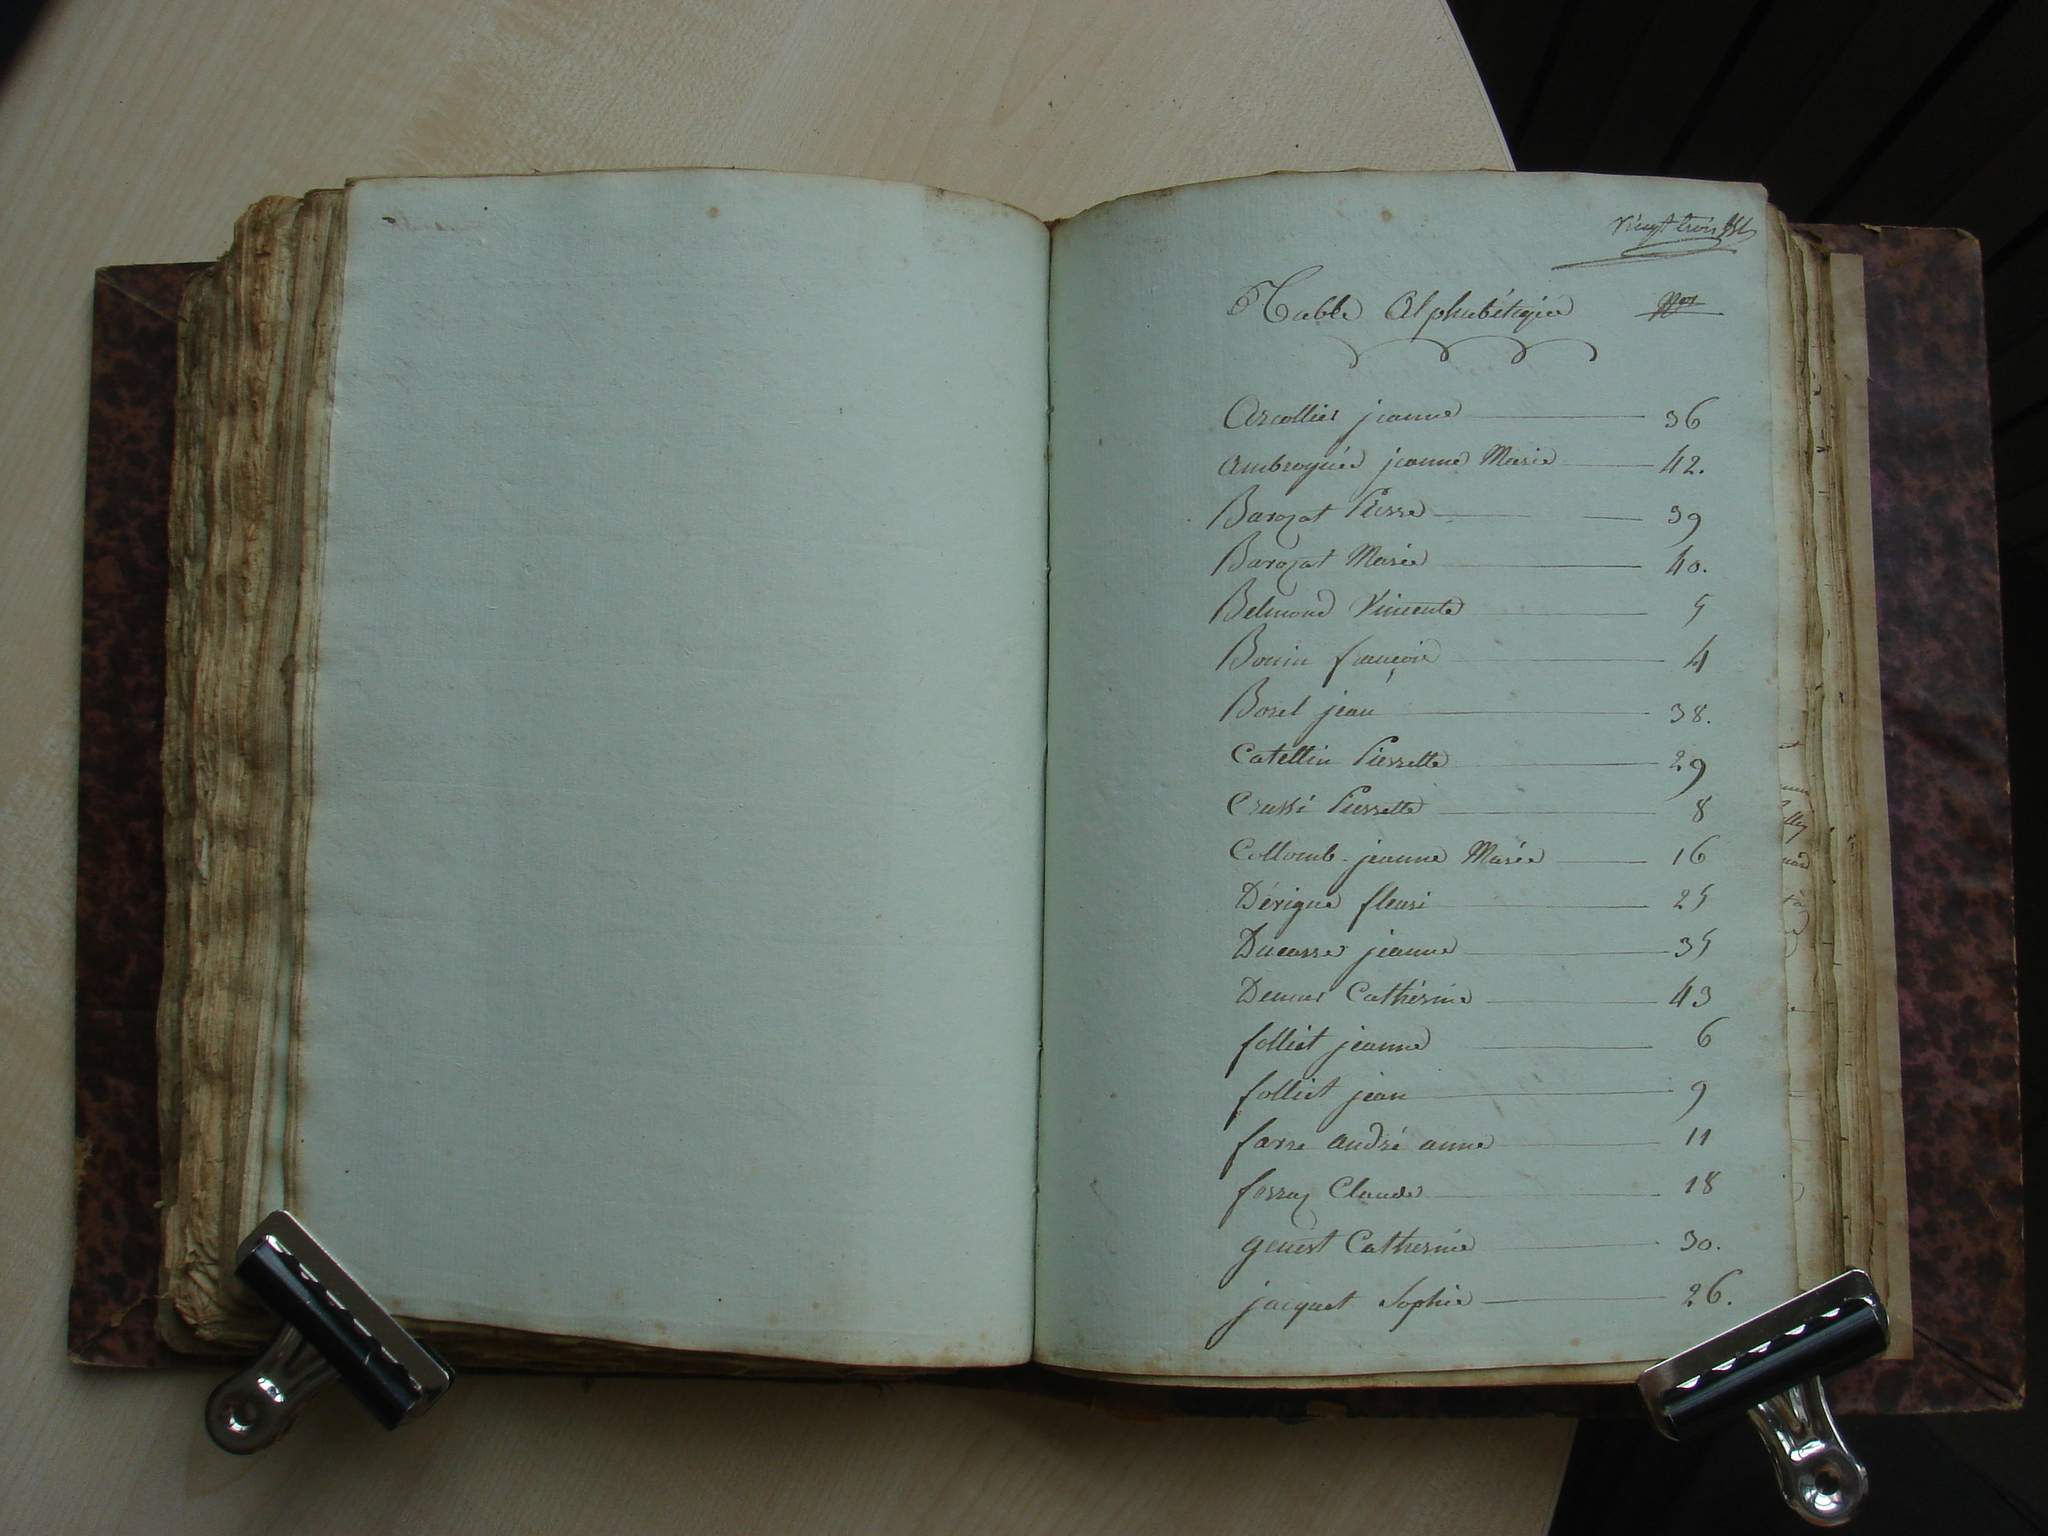 Vingt trois
Table Alphabétique Nos
Arcollier jeanne 36
Ambroguée jeanne Marie 42.
Barozat Pierre 39
Barozat Marie 40.
Belmond Vincente 5
Bouin françois 4
Borel jean 38.
Catellin Pierrette 29
Crussi Pierrette 8
Collomb jeanne Marie 16
Dérigue fleuri 25
Ducasse jeanne 35
Catherine 43
folliet jeanne 6
folliet jean 9
farre andré anne 11
Claude 18
genest Catherine 30.
jacquet Sophie 26.